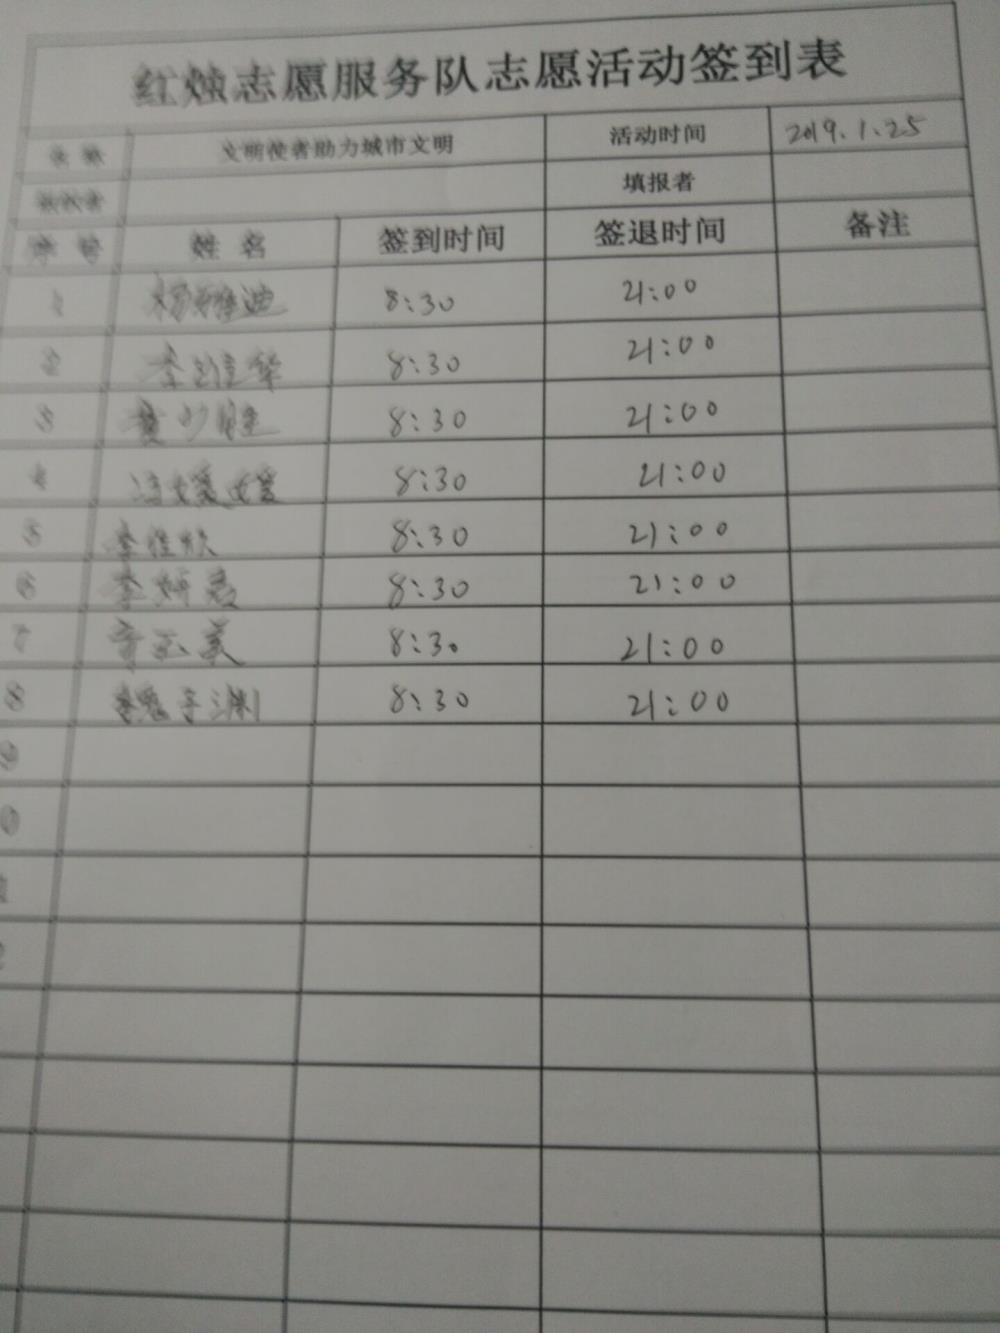 红烛志愿服务队志愿活动签到表
名称 文明使者助力城市文明 活动时间 2019.1.25
填报者
序号 姓名 签到时间 签退时间 备注
1 杨雅迪 8:30 21:00
2 李 华 8:30 21:00
3 8:30 21:00
4 冯媛媛 8:30 21:00
5 李佳欣 8:30 21:00
6 李 8:30 21:00
7 8:30 21:00
8 魏子渊 8:30 21:00